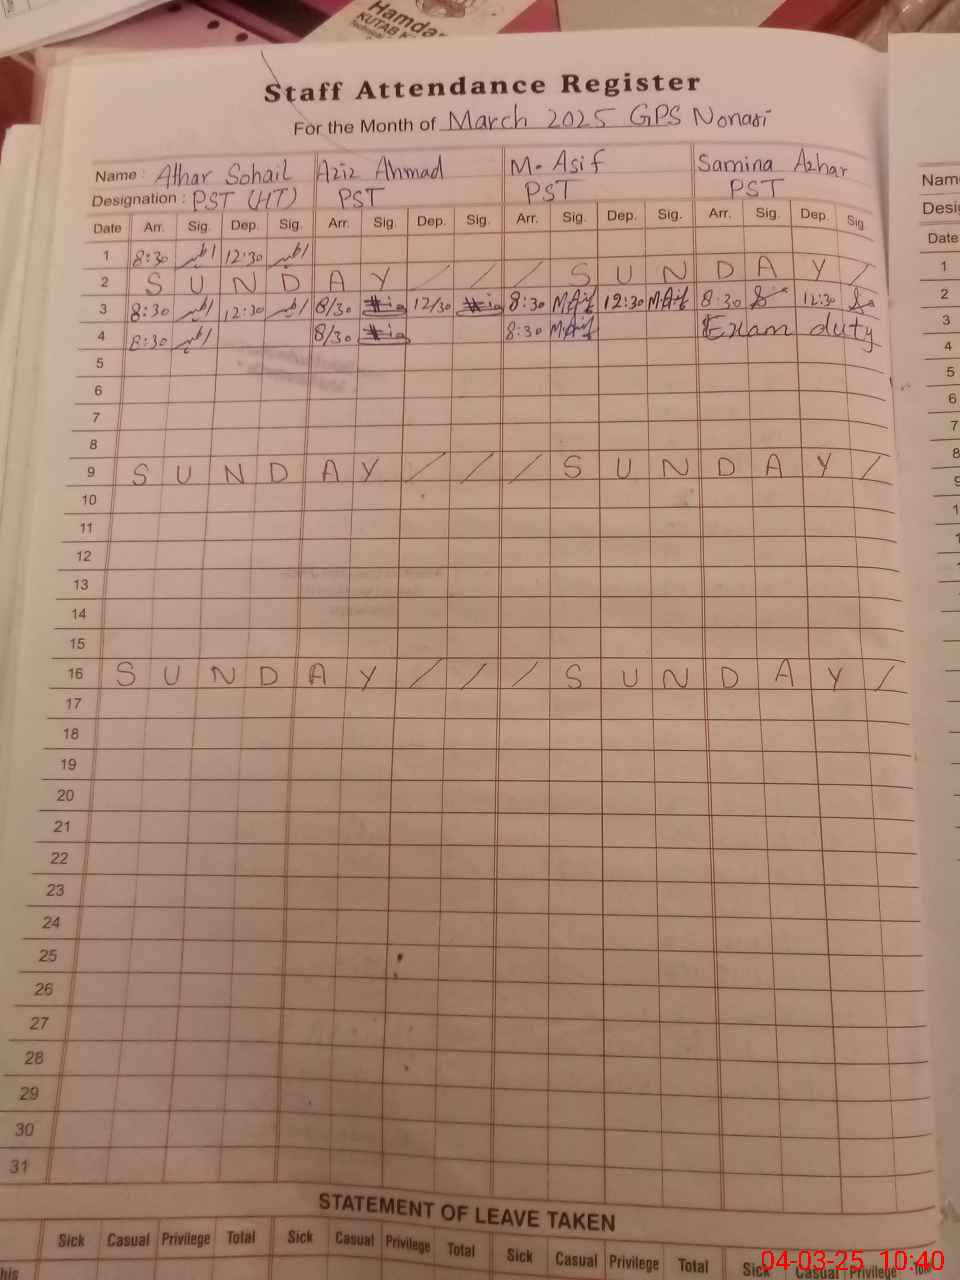 Hamda
KUTAB K
Technical
Staff Attendance Register
For the Month of March 2025 GPS Nonari
Name : Athar Sohail Aziz Ahmad M. Asif Samina Azhar
Designation : PST (HT) PST PST PST
Date Arr. Sig. Dep. Sig. Arr. Sig. Dep. Sig. Arr. Sig. Dep. Sig. Arr. Sig. Dep. Sig.
1 8:30 12:30
2 S U N D A Y / / / S U N D A Y /
3 8:30 12:30 8/30 12/30 8:30 M.Asif 12:30 M.Asif 8:30 12:30
4 8:30 8/30 8:30 M.Asif Exam duty
5
6
7
8
9 S U N D A Y / / / S U N D A Y /
10
11
12
13
14
15
16 S U N D A Y / / / S U N D A Y /
17
18
19
20
21
22
23
24
25
26
27
28
29
30
31
STATEMENT OF LEAVE TAKEN
Sick Casual Privilege Total Sick Casual Privilege Total Sick Casual Privilege Total Sick Casual Privilege
his
04-03-25 10:40
Nam
Desi
Date
1
2
3
4
5
6
7
8